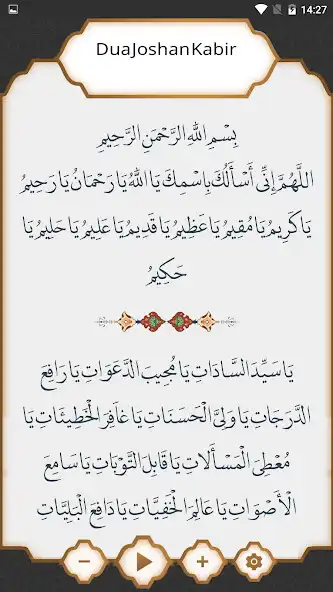 14:27
DuaJoshanKabir
بِسْمِ اللهِ الرَّحْمَنِ الرَّحِيمِ
اللَّهُمَّ إِنِّي أَسْأَلُكَ بِاسْمِكَ يَا اللهُ يَا رَحْمَانُ يَا رَحِيمُ
يَا كَرِيمُ يَا مُقِيمُ يَا عَظِيمُ يَا قَدِيمُ يَا عَلِيمُ يَا حَلِيمُ يَا
حَكِيمُ
يَا سَيِّدَ السَّادَاتِ يَا مُجِيبَ الدَّعَوَاتِ يَا رَافِعَ
الدَّرَجَاتِ يَا وَلِيَّ الْحَسَنَاتِ يَا غَافِرَ الْخَطِيئَاتِ يَا
مُعْطِيَ الْمَسْأَلَاتِ يَا قَابِلَ التَّوْبَاتِ يَا سَامِعَ
الْأَصْوَاتِ يَا عَالِمَ الْخَفِيَّاتِ يَا دَافِعَ الْبَلِيَّاتِ